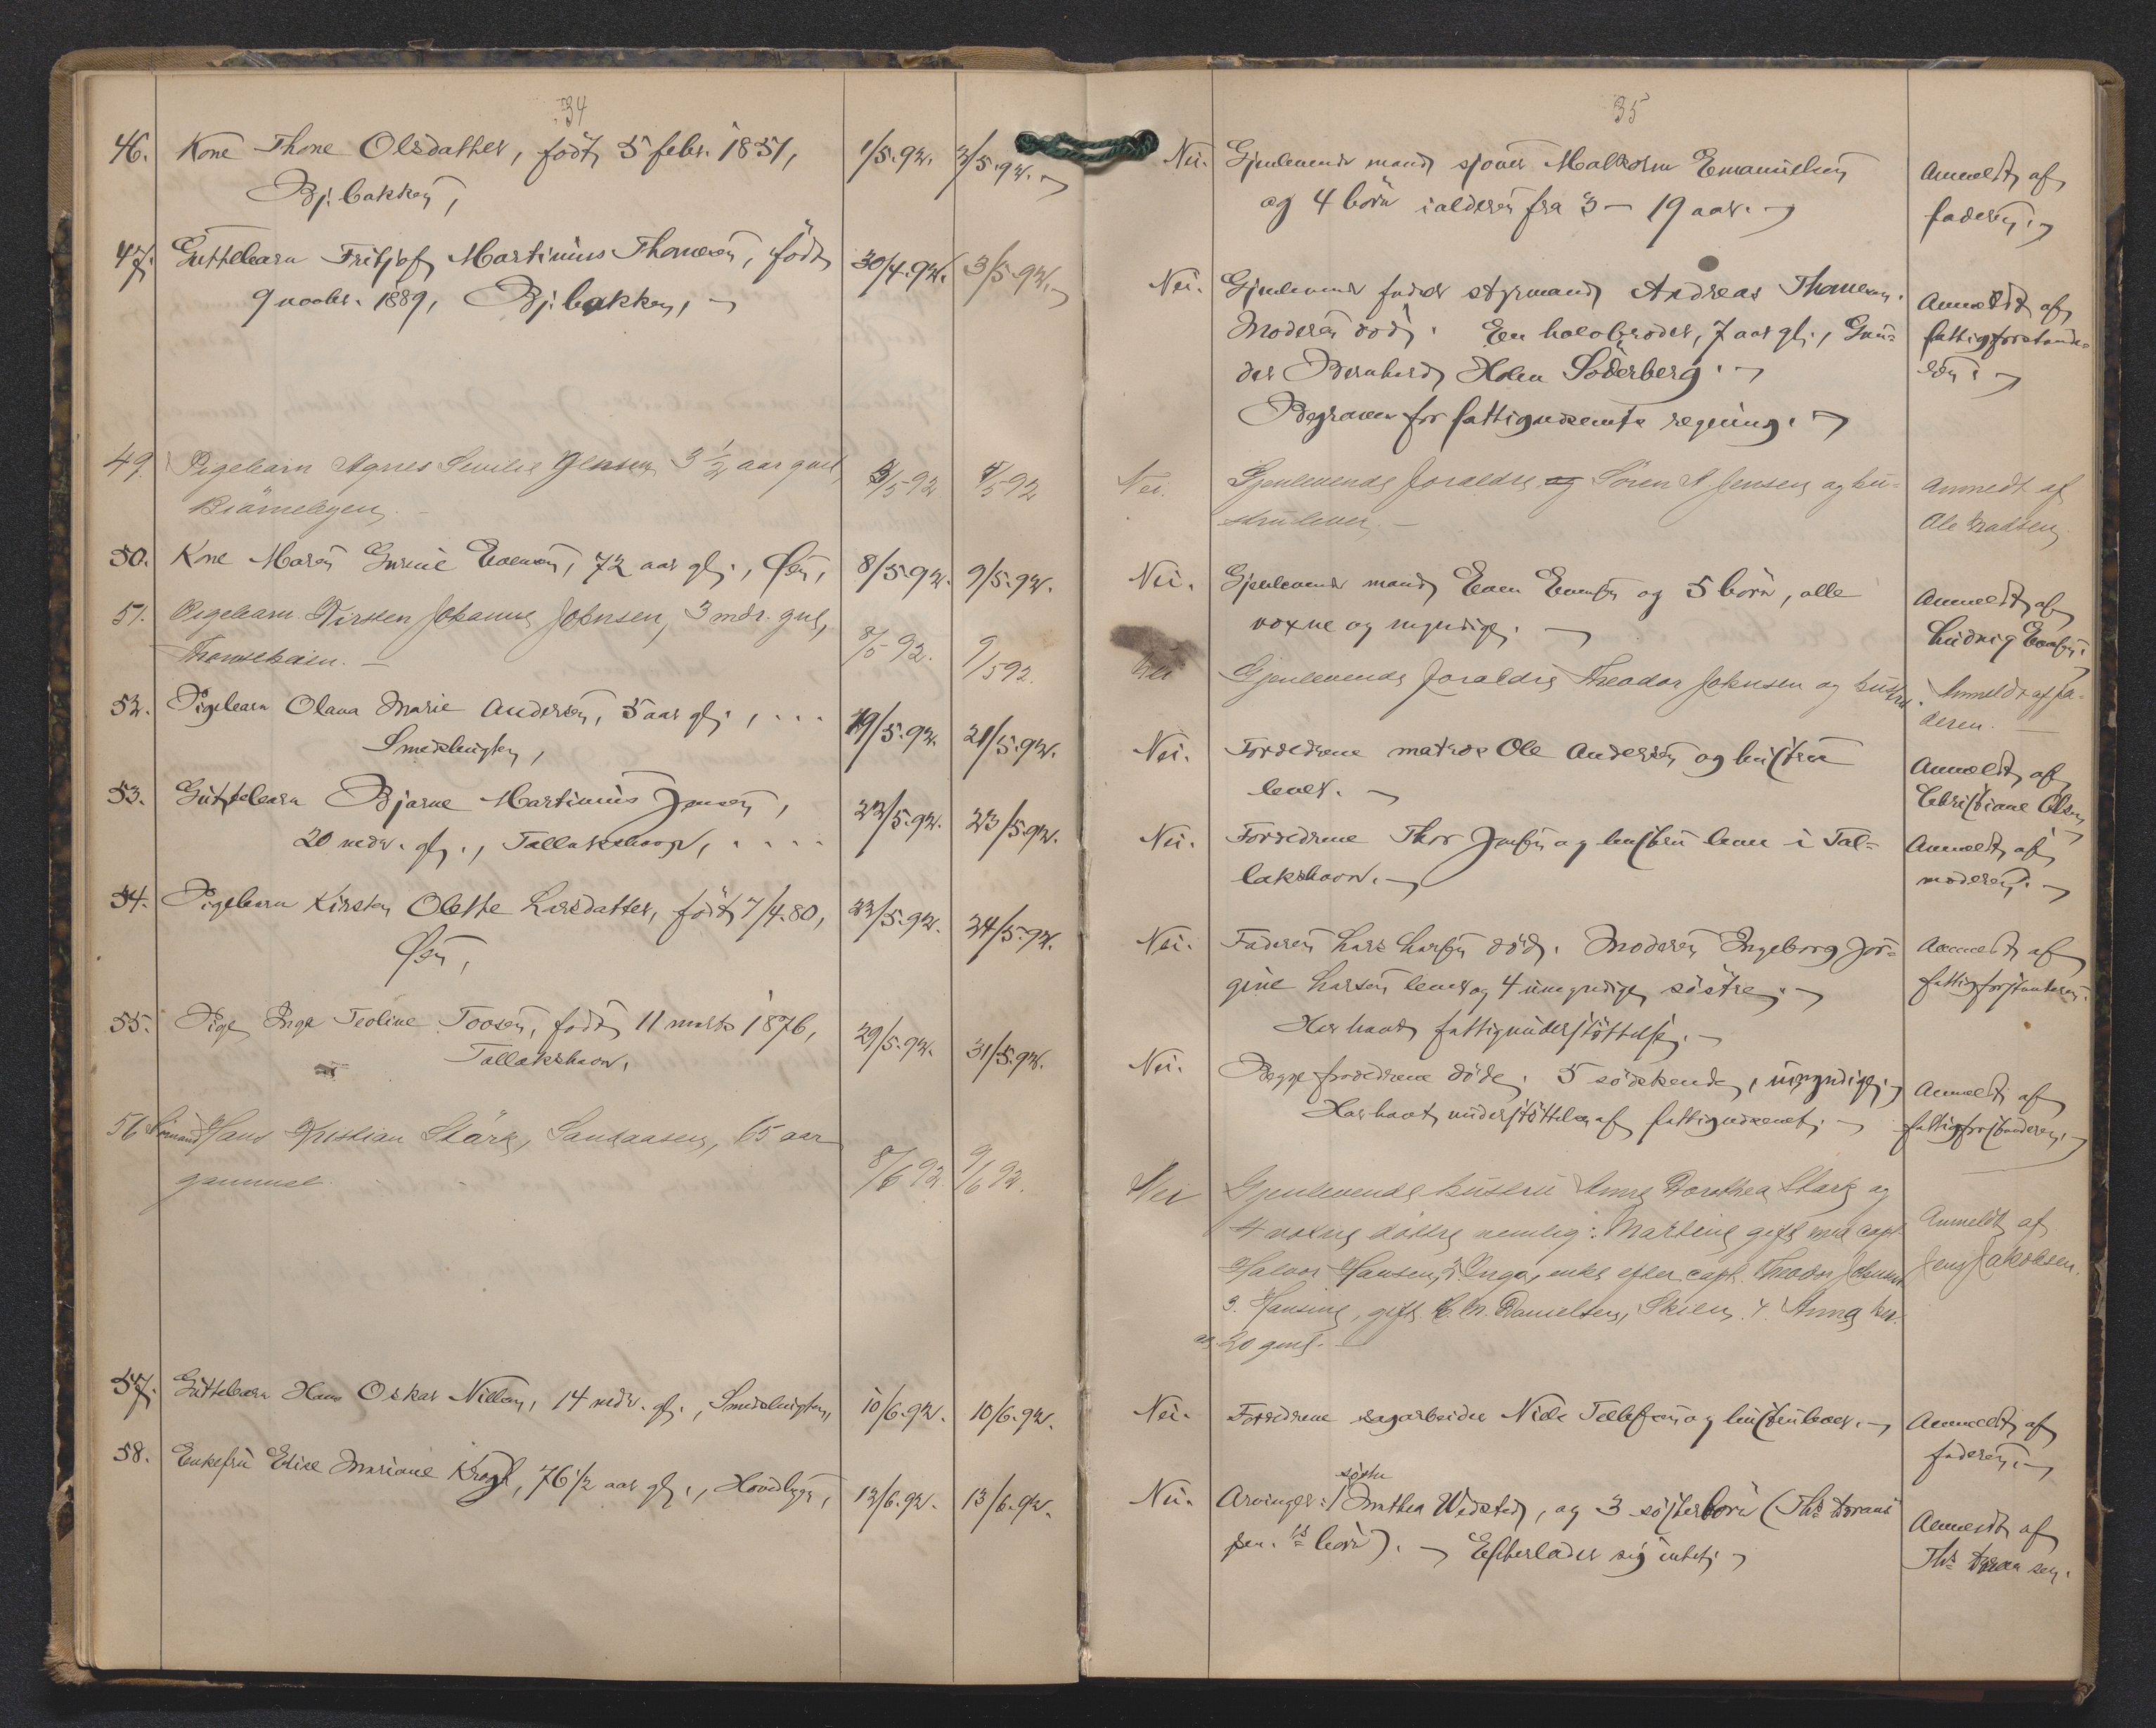 34
46. Kone Thone Olsdatter, født 5 febr. 1851, 1/5.92. 2/5.92.
Bj. bakken,
47. Guttebarn Fritjof Martinius Thomesen, født 30/4.92. 3/5.92.
9 novbr. 1889, Bj. bakken,
49. Pigebarn Agnes Emilie Jensen 3 1/2 aar gml 3/5 92 4/5 92
Bjørnebyen. –
50. Kone Maren Gurine Evensen, 72 aar gl., Øen, 8/5.92. 9/5.92.
51. Pigebarn Kirsten Johanne Johnsen, 3 mdr. gml, 8/5 92. 9/5 92.
52. Pigebarn Olava Marie Andersen, 5 aar gl., . . . 19/5.92. 21/5.92.
Smedsbugten,
53. Guttebarn Bjarne Martinius Jensen, 22/5.92. 23/5.92.
20 mdr. gl., Tallakshavn, . . . .
54. Pigebarn Kirsten Olette Larsdatter, født 7/4.80, 22/5.92. 24/5.92.
Øen,
55. Pige Inga Teoline Toosen, født 11 marts 1876, 29/5.92. 31/5.92.
Tallakshavn.
56 Hans Kristian Stärk, Sandaasen, 65 aar 8/6 92. 9/6 92.
gammel.
57. Guttebarn Hans Oskar Nilsen, 14 mdr. gl., Smedsbugten, 10/6.92. 10/6.92.
58. Enkefru Elise Mariane Krogh, 76 1/2 aar gl., 12/6.92. 13/6.92.
35
Nei. Gjenlevende mand sjouer Malkolm Emanuelsen Anmeldt af
og 4 børn i alderen fra 3 – 19 aar. faderen.
Nei. Gjenlevende fader styrmand Andreas Thomesen. Anmeldt af
Moderen død. En halvbroder, 7 aar gl., Gun- fattigforstande-
der Bernhard Holm Söderberg. ren.
Begraves for fattigvæsenets regning.
Nei. Gjenlevende foraldre og Søren A. Jensen og hu- Anmedt af
stru lever. – Ole Madsen
Nei. Gjenlevende mand Even Evensen og 5 børn, alle Anmeldt af
voxne og myndige. Ludvig Evensen.
Nei Gjenlevende foraldre Theodor Johnsen og hustru. Anmeldt af fa-
deren.
Nei. Forældrene matros Ole Andersen og hustru Anmeldt af
lever. Christiane Olsen
Nei. Forældrene Thor Jensen og hustru lever i Tal- Anmeldt af
lakshavn. moderen.
Nei. Faderen Lars Larsen død. Moderen Ingeborg Jør- Anmeldt af
gine Larsen lever og 4 umyndige søstre. fattigforstanderen.
Har havt fattigunderstøttelse.
Nei. Begge forældrene døde. 5 södskende, umyndige. Anmeldt af
Har havt understøttelse af fattigvæsenet. fattigforstanderen.
Nei Gjenlevende hustru Anne Dorothea Stark og
4 voxne døttre nemlig: Martine gift med capt. Anmeldt af
Halvor Hansen, 2 Inga, enke efter capt. Theodor Johnsen Jens Jakobsen.
3. Hansine, gift C. M. Danielsen, Skien. 4 Anna
20 gml.
Nei. Forældrene sagarbeider Nils Tellefsen og hustru lever. Anmeldt af
faderen.
søster
Nei. Arvinger: 1 Mathea Widsted, og 3 søsterbørn (Ths Aanonsen Anmeldt af
sen.s børn). Efterlader sig intet.